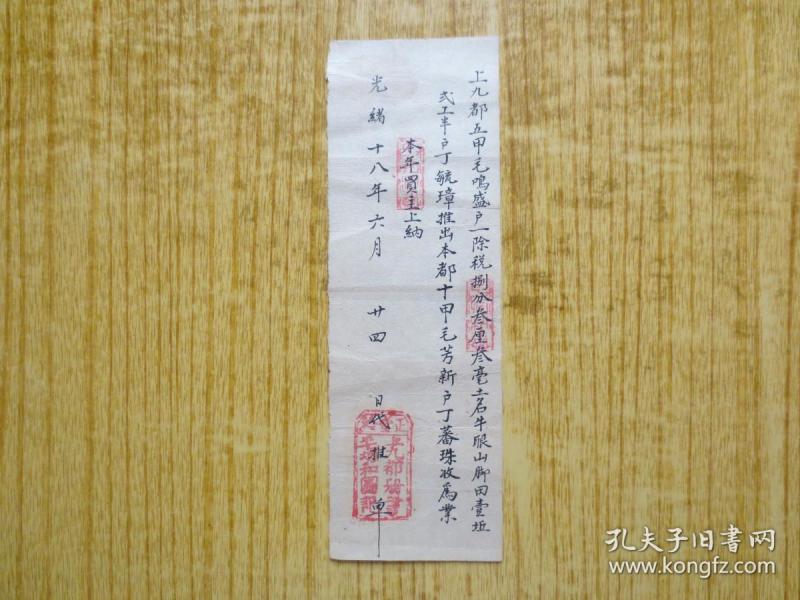 上九都五甲毛鳴盛戶一除稅捌分叁厘叁毫土名牛眼山脚田壹坵
弍工半戶丁毓璋推出本都十甲毛芳新戶丁蕃珠收為業
本年買主上納
光緒十八年六月廿四日代推單
上九都
和圖
孔夫子旧书网
www.kongfz.com